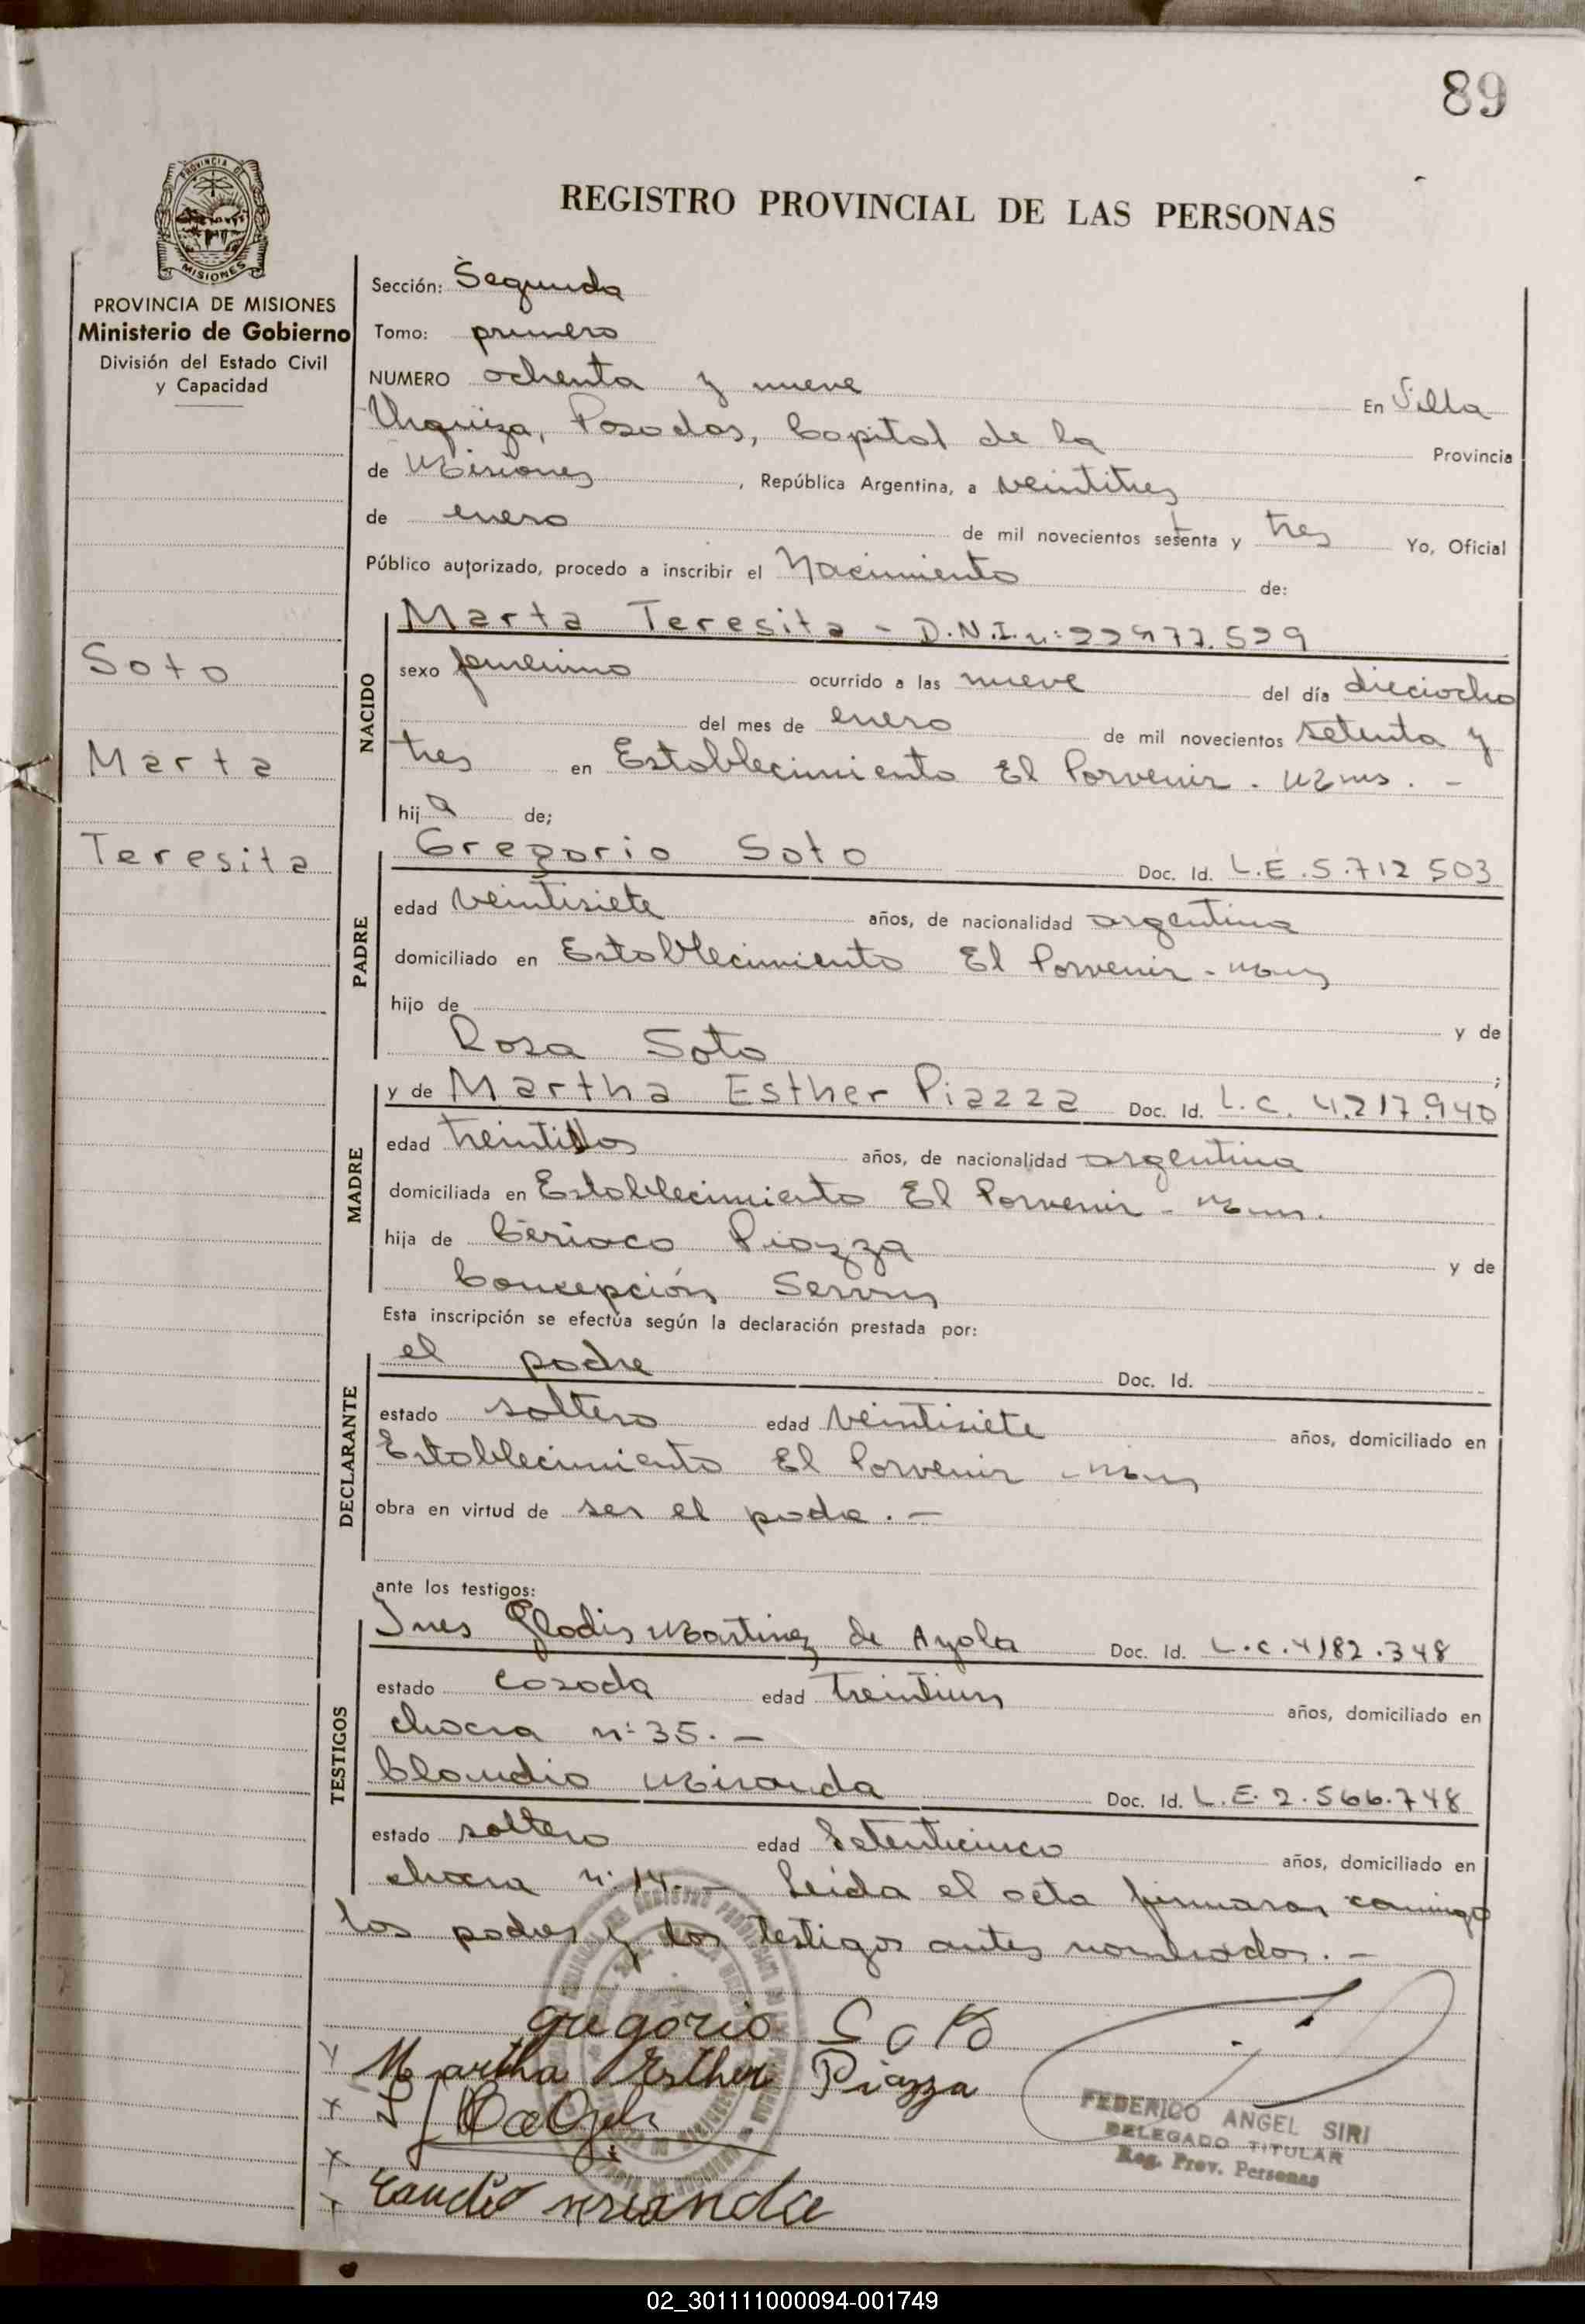 89
PROVINCIA DE
MISIONES
REGISTRO PROVINCIAL DE LAS PERSONAS
PROVINCIA DE MISIONES
Ministerio de Gobierno
División del Estado Civil
y Capacidad
Soto
Marta
Teresita
Sección: Segunda
Tomo: primero
NUMERO ochenta y nueve En Villa
Urquiza, Posadas, Capital de la Provincia
de Misiones, República Argentina, a veintitres
de enero de mil novecientos setenta y tres Yo, Oficial
Público autorizado, procedo a inscribir el Nacimiento de:
NACIDO
Marta Teresita - D.N.I. n: 22.977.529
sexo femenino ocurrido a las nueve del día dieciocho
del mes de enero de mil novecientos setenta y
tres en Establecimiento El Porvenir. Mnes. -
hija de;
PADRE
Gregorio Soto Doc. Id. L.E. 5.712 503
edad veintisiete años, de nacionalidad argentina
domiciliado en Establecimiento El Porvenir - Mnes
hijo de y de
Rosa Soto ;
MADRE
y de Martha Esther Piazza Doc. Id. L.C. 4.217.940
edad treintidos años, de nacionalidad argentina
domiciliada en Establecimiento El Porvenir - Mnes.
hija de Ceriaco Piazza y de
Concepción
Esta inscripción se efectúa según la declaración prestada por:
DECLARANTE
el padre Doc. Id.
estado soltero edad veintisiete años, domiciliado en
Establecimiento El Porvenir - Mnes
obra en virtud de ser el padre. -
ante los testigos:
TESTIGOS
Ines Gladis Martinez de Ayala Doc. Id. L.C. 4182.348
estado casada edad treintiun años, domiciliado en
chacra n: 35. -
Claudio Miranda Doc. Id. L.E. 2.566.748
estado soltero edad Setenticinco años, domiciliado en
chacra n: 14. - Leida el acta firmaran conmigo
los padres y los testigos antes nombrados. -
gregorio Soto
Martha Esther Piazza
Claudio Miranda
FEDERICO ANGEL SIRI
DELEGADO TITULAR
Reg. Prov. Personas
02_301111000094-001749